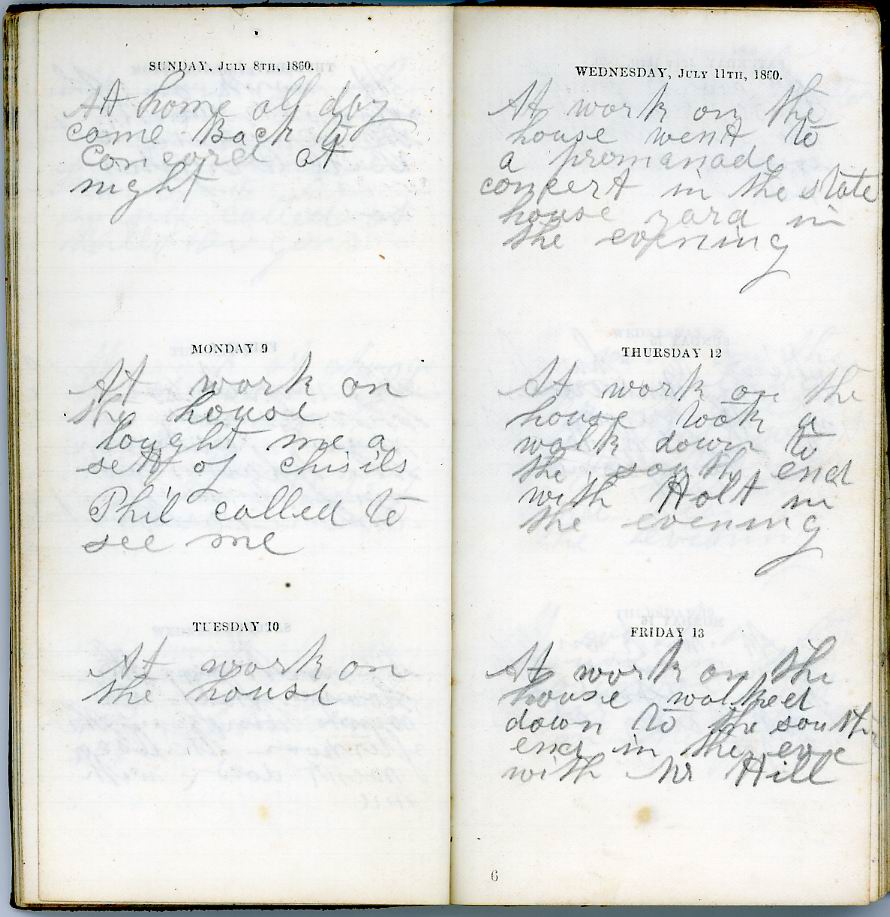 SUNDAY, JULY 8TH, 1860.
At home all day
come Back to
Concord at
night
MONDAY 9
At work on
the house
bought me a
sett of chisils
Phil called to
see me
TUESDAY 10
At work on
the house
WEDNESDAY, JULY 11TH, 1860.
At work on the
house went to
a promanade
concert in the state
house yard in
the evening
THURSDAY 12
At work on the
house took a
walk down to
the south end
with Holt in
the evening
FRIDAY 13
At work on the
house walked
down to the south
end in the eve
with Hill
6